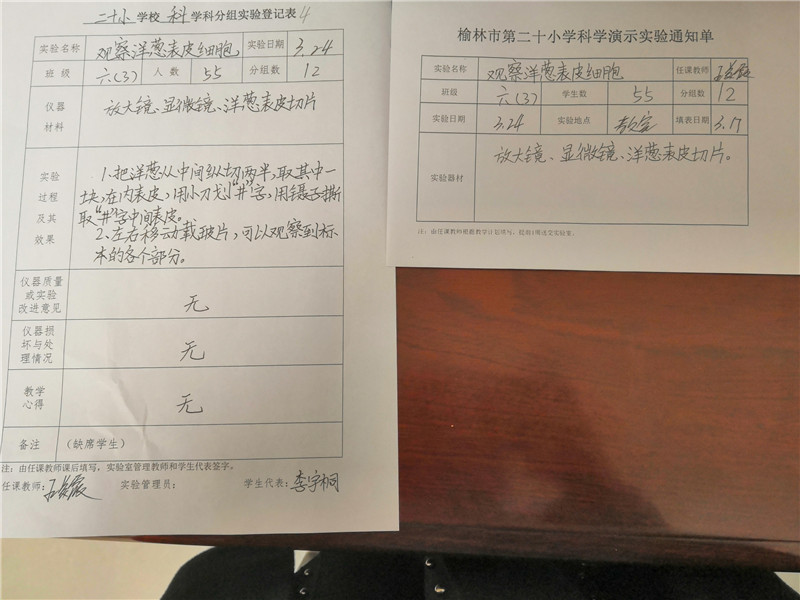 二十小学校科学科分组实验登记表4
实验名称 观察洋葱表皮细胞 实验日期 3.24
班级 六(3) 人数 55 分组数 12
仪器材料 放大镜、显微镜、洋葱表皮切片
实验过程及其效果
1、把洋葱从中间纵切两半,取其中一
块,在内表皮,用小刀划"井"字,用镊子撕
取"井"字中间表皮。
2、左右移动载玻片,可以观察到标
本的各个部分。
仪器质量或实验改进意见 无
仪器损坏与处理情况 无
教学心得 无
备注 (缺席学生)
注:由任课教师课后填写,实验室管理教师和学生代表签字。
任课教师: 实验管理员: 学生代表:李宇桐
榆林市第二十小学科学演示实验通知单
实验名称 观察洋葱表皮细胞 任课教师
班级 六(3) 学生数 55 分组数 12
实验日期 3.24 实验地点 教室 填表日期 3.17
实验器材 放大镜、显微镜、洋葱表皮切片。
注:由任课教师根据教学计划填写,提前1周送交实验室。